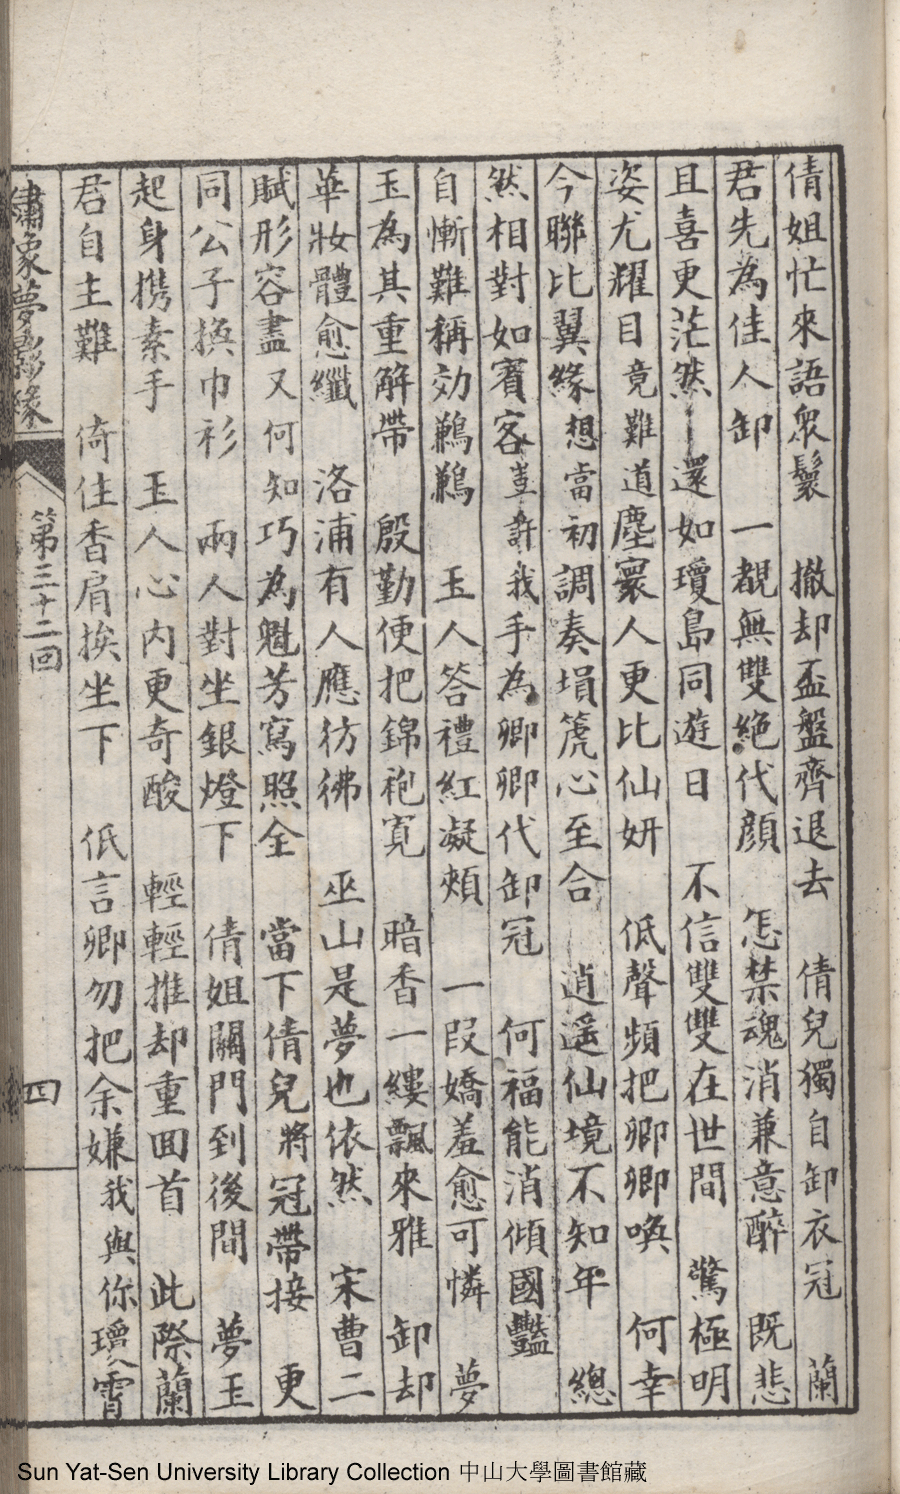 倩姐忙來語衆鬟　撤却盃盤齊退去　倩兒獨自卸衣冠　蘭
君先為佳人卸　一覩無雙絶代顏　怎禁魂消兼意醉　既悲
且喜更茫然　還如瓊島同遊日　不信雙雙在世間　驚極明
姿尤耀目竟難道塵寰人更比仙妍　低聲頻把卿卿喚　何幸
今聯比翼緣想當初調奏塤箎心至合　逍遥仙境不知年　總
然相對如賓客豈許我手為卿卿代卸冠　何福能消傾國豔
自慚難稱効鶼鶼　玉人答禮紅凝頰　一叚嬌羞愈可憐　夢
玉為其重解帶　殷勤便把錦袍寬　暗香一縷飄來雅　卸却
華妝體愈纖　洛浦有人應彷彿　巫山是夢也依然　宋曹二
賦形容盡又何知巧為魁芳寫照全　當下倩兒將冠帶接　更
同公子換巾衫　兩人對坐銀燈下　倩姐關門到後間　夢玉
起身携素手　玉人心内更奇酸　輕輕推却重回首　此際蘭
君自主難　倚住香肩挨坐下　低言卿勿把余嫌我與你瓊霄
繡像夢影緣
第三十二回
四
Sun Yat-Sen University Library Collection 中山大學圖書館藏